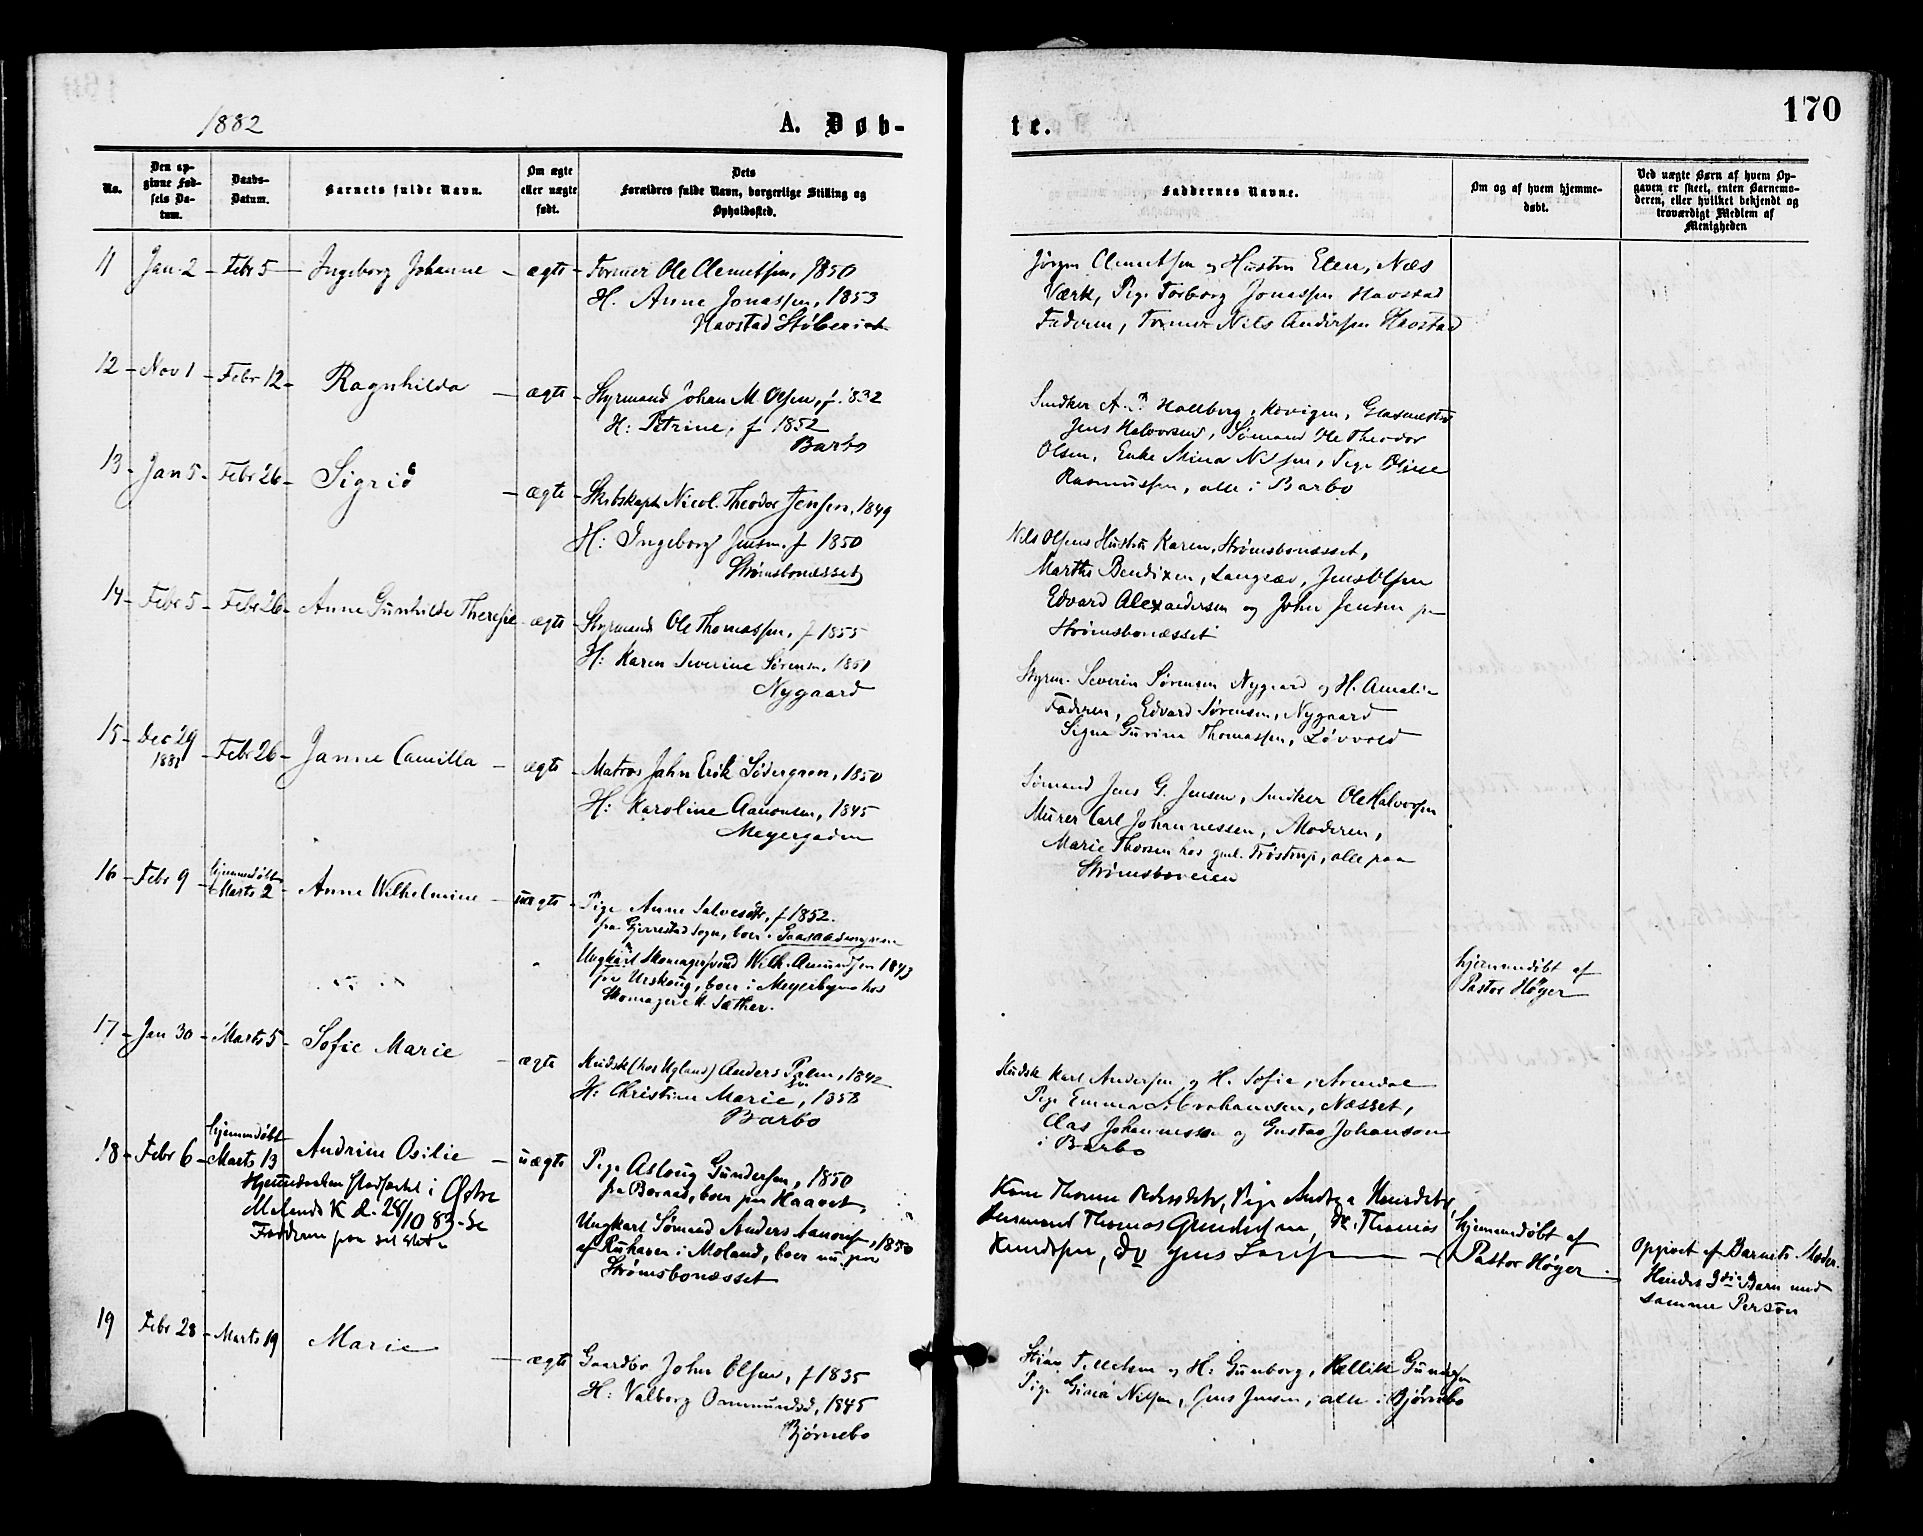 1882
A. Døb-
te.
170
No.
Den op-
givne Fød-
sels Da-
tum.
Daabs-
Datum.
Barnets fulde Navn.
Om ægte
eller uægte
født.
Dets
Forældres fulde Navn, borgerlige Stilling og
Opholdssted.
Faddernes Navne.
Om og af hvem hjemme-
døbt.
Ved uægte Børn af hvem Op-
gaven er skeet, enten Barnemo-
deren, eller hvilket bekjendt og
troværdigt Medlem af
Menigheden
11 Jan. 2 Febr 5 Ingeborg Johanne ægte Former Ole Clemetsen, 1850
H. Anne Jonassen, 1853
Havstad Støberiet
Jørgen Clemetsen og Hustru Elen, Næs
Værk, Pige Torborg Jonassen Havstad
Faderen, Former Nils Andersen Havstad
12 Nov 1 Febr 12 Ragnhilda ægte Styrmand Johan M. Olsen, f. 1832
H: Petrine, f 1852
Barbo
Snedker A. P. Hallberg, Kovigen, Glasmester
Jens Halvorsen, Sømand Ole Theodor
Olsen, Enke Mina Nilsen, Pige Oline
Rasmussen, alle i Barbo
13 Jan 5 Febr 26 Sigrid ægte Skibskapt Nicol. Theodor Jensen, 1849
H: Ingeborg Jensen f 1850
Strømsbonæsset
Nils Olsens Hustru Karen, Strømsbonæsset,
Marthe Bendixen, Langsæv, Jens Olsen
Edvard Alexandersen og John Jensen paa
Strømsbonæsset
14 Febr 5 Febr 26 Anne Gunhilde Theresie ægte Styrmand Ole Thomassen, f 1855
H: Karen Severine Sørensen, 1851
Nygaard
Styrm. Severin Sørensen Nygaard og H. Amalie
Faderen, Edvard Sørensen, Nygaard
Signe Gurine Thomassen, Løvvold
15 Dec 29
1881 Febr 26 Janne Camilla ægte Matros John Erik Södergren, 1850
H: Karoline Aanonsen, 1845
Meyergaden
Sømand Jens G. Jensen, Snedker Ole Halvorsen
Murer Carl Johannessen, Moderen,
Marie Thorsen hos gml. Trøstrup, alle paa
Strømsboveien
16 Febr 9 hjemmedøbt
Marts 2 Anne Wilhelmine uægte Pige Anne Salvesdtr, f 1852.
fra Gjerrestad Sogn, boer
Ungkarl Skomagersvend Wilh. Amundsen 1843
fra Urskoug, boer i Meyerbyen hos
Skomager M. Sæther.
hjemmedøbt af
Pastor Høyer
17 Jan 30 Marts 5 Sofie Marie ægte Kudsk (hos Ugland) Anders Palm, 1842
H: Christine Marie, 1858
Barbo
Kudsk Karl Andersen og H. Sofie, Arendal
Pige Emma Abrahamsen, Næsset,
Clas Johannessen og Gustav Johanson
i Barbo
18 Febr 6 hjemmedøbt
Marts 13 Andrine Osilie uægte Pige Asloug Gundersen, 1850
fra Boraas, boer paa Haavet
Hjemmedaaben stadfæstet i Østre
Molands K d. 28/10 83 - Se
Fadderne paa sit Sted
Ungkarl Sømand Anders Aanonsen, 1850
af Ruhaven i Moland, boer nu paa
Strømsbonæsset
Kone Thomine Pedersdatter, Pige Andrea Knudsdtr,
Sørmand Thomas Gundersen, do. Thomas
Knudsen, do Jens Larsen
hjemmedøbt af
Pastor Høyer
Opgivet af Barnets Moder.
Hendes 3die Barn med
samme Person
19 Febr 28 Marts 19 Marie ægte Gaardbr John Olsen, f 1835
H: Valborg Ommundsd, 1845
Bjørnebo
Stian Tellefsen og H. Gunborg, Kallik Gundersen
Pige Gina Nilsen, Jens Jensen, alle i Bjørnebo